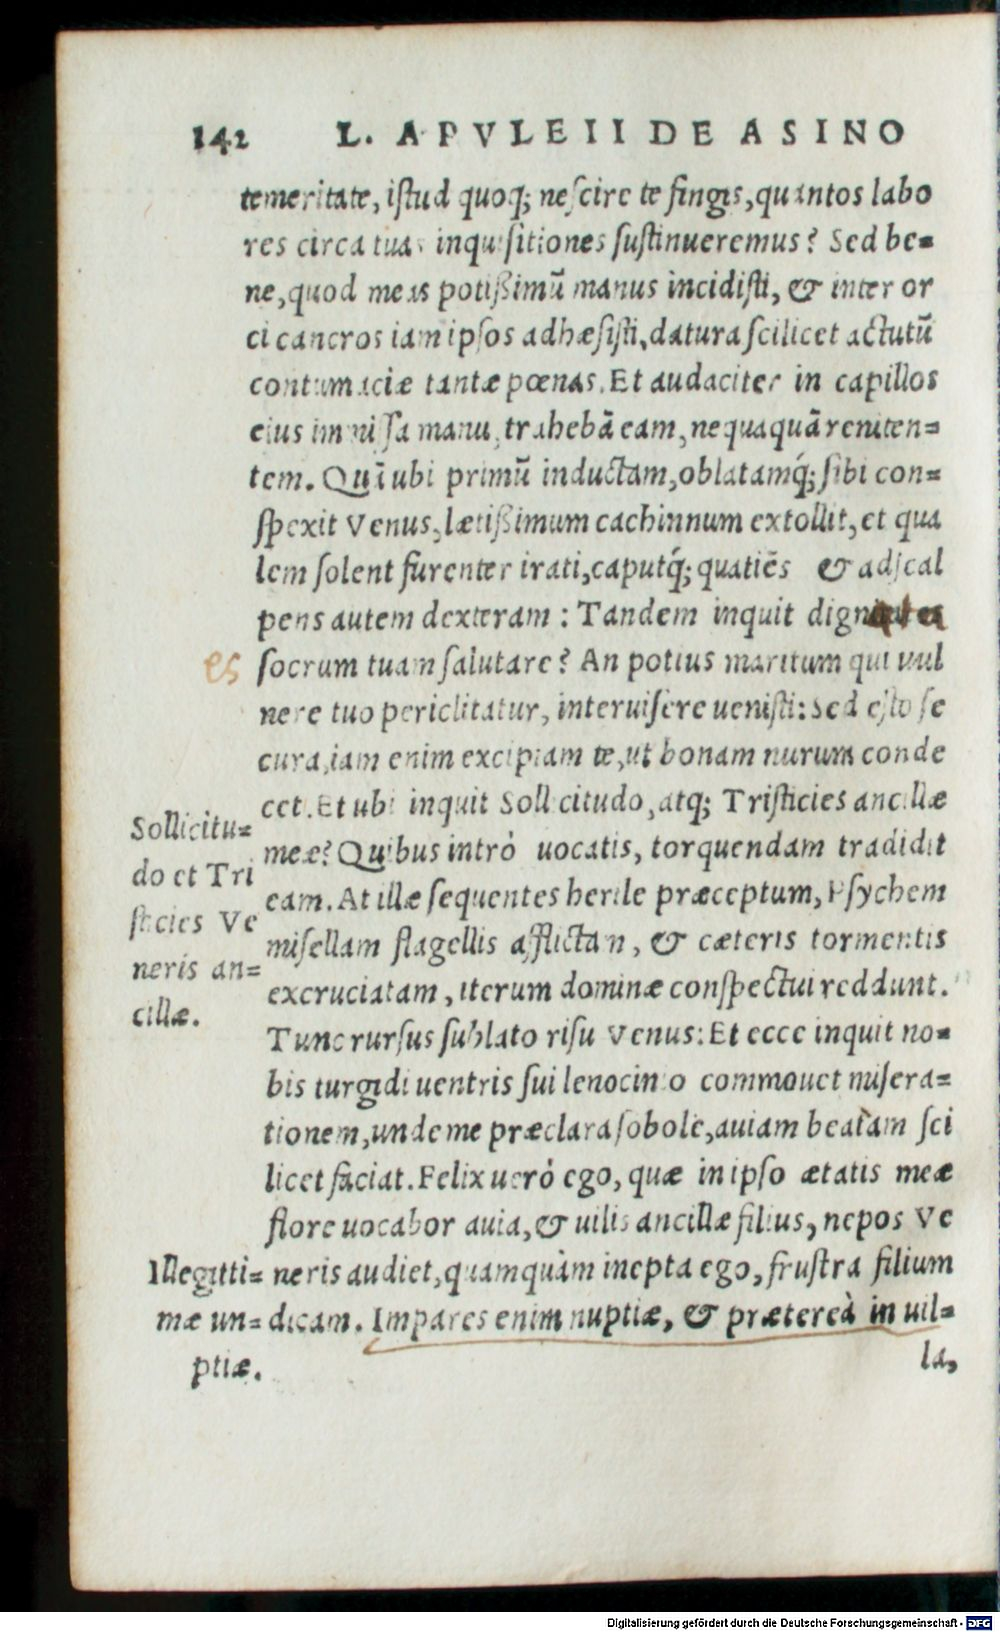 142 L. APVLEII DE ASINO
temeritate, istud quoq; nescire te fingis, quantos labo
res circa tuas inquisitiones sustinueremus? Sed be=
ne, quod meas potißimũ manus incidisti, & inter or
ci cancros iam ipsos adhæsisti, datura scilicet actutũ
contumaciæ tantæ pœnas. Et audaciter in capillos
eius immissa manu, trahebã eam, nequaquã reniten=
tem. Quã ubi primũ inductam, oblatamq́; sibi con=
spexit Venus, lætißimum cachinnum extollit, et qua
lem solent furenter irati, caputq́; quatiẽs & adscal
pens autem dexteram: Tandem inquit
es socrum tuam salutare? An potius maritum qui uul
nere tuo periclitatur, interuisere uenisti: Sed esto se
cura, iam enim excipiam te, ut bonam nurum conde
cet. Et ubi inquit Sollicitudo, atq; Tristicies ancillæ
meæ? Quibus intrò uocatis, torquendam tradidit
eam. At illæ sequentes herile præceptum, Psychem
misellam flagellis afflictam, & cæteris tormentis
excruciatam, iterum dominæ conspectui reddunt.
Tunc rursus sublato risu Venus: Et ecce inquit no=
bis turgidi uentris sui lenocinio commouet misera=
tionem, unde me præclara sobole, auiam beatam sci
licet faciat. Felix uerò ego, quæ in ipso ætatis meæ
flore uocabor auia, & uilis ancillæ filius, nepos Ve
neris audiet, quamquàm inepta ego, frustra filium
dicam. Impares enim nuptiæ, & prætereà in uil=
la,
Sollicitu=
do et Tri
sticies Ve
neris an=
cillæ.
Illegitti=
mæ un=
ptiæ.
Digitalisierung gefördert durch die Deutsche Forschungsgemeinschaft - DFG